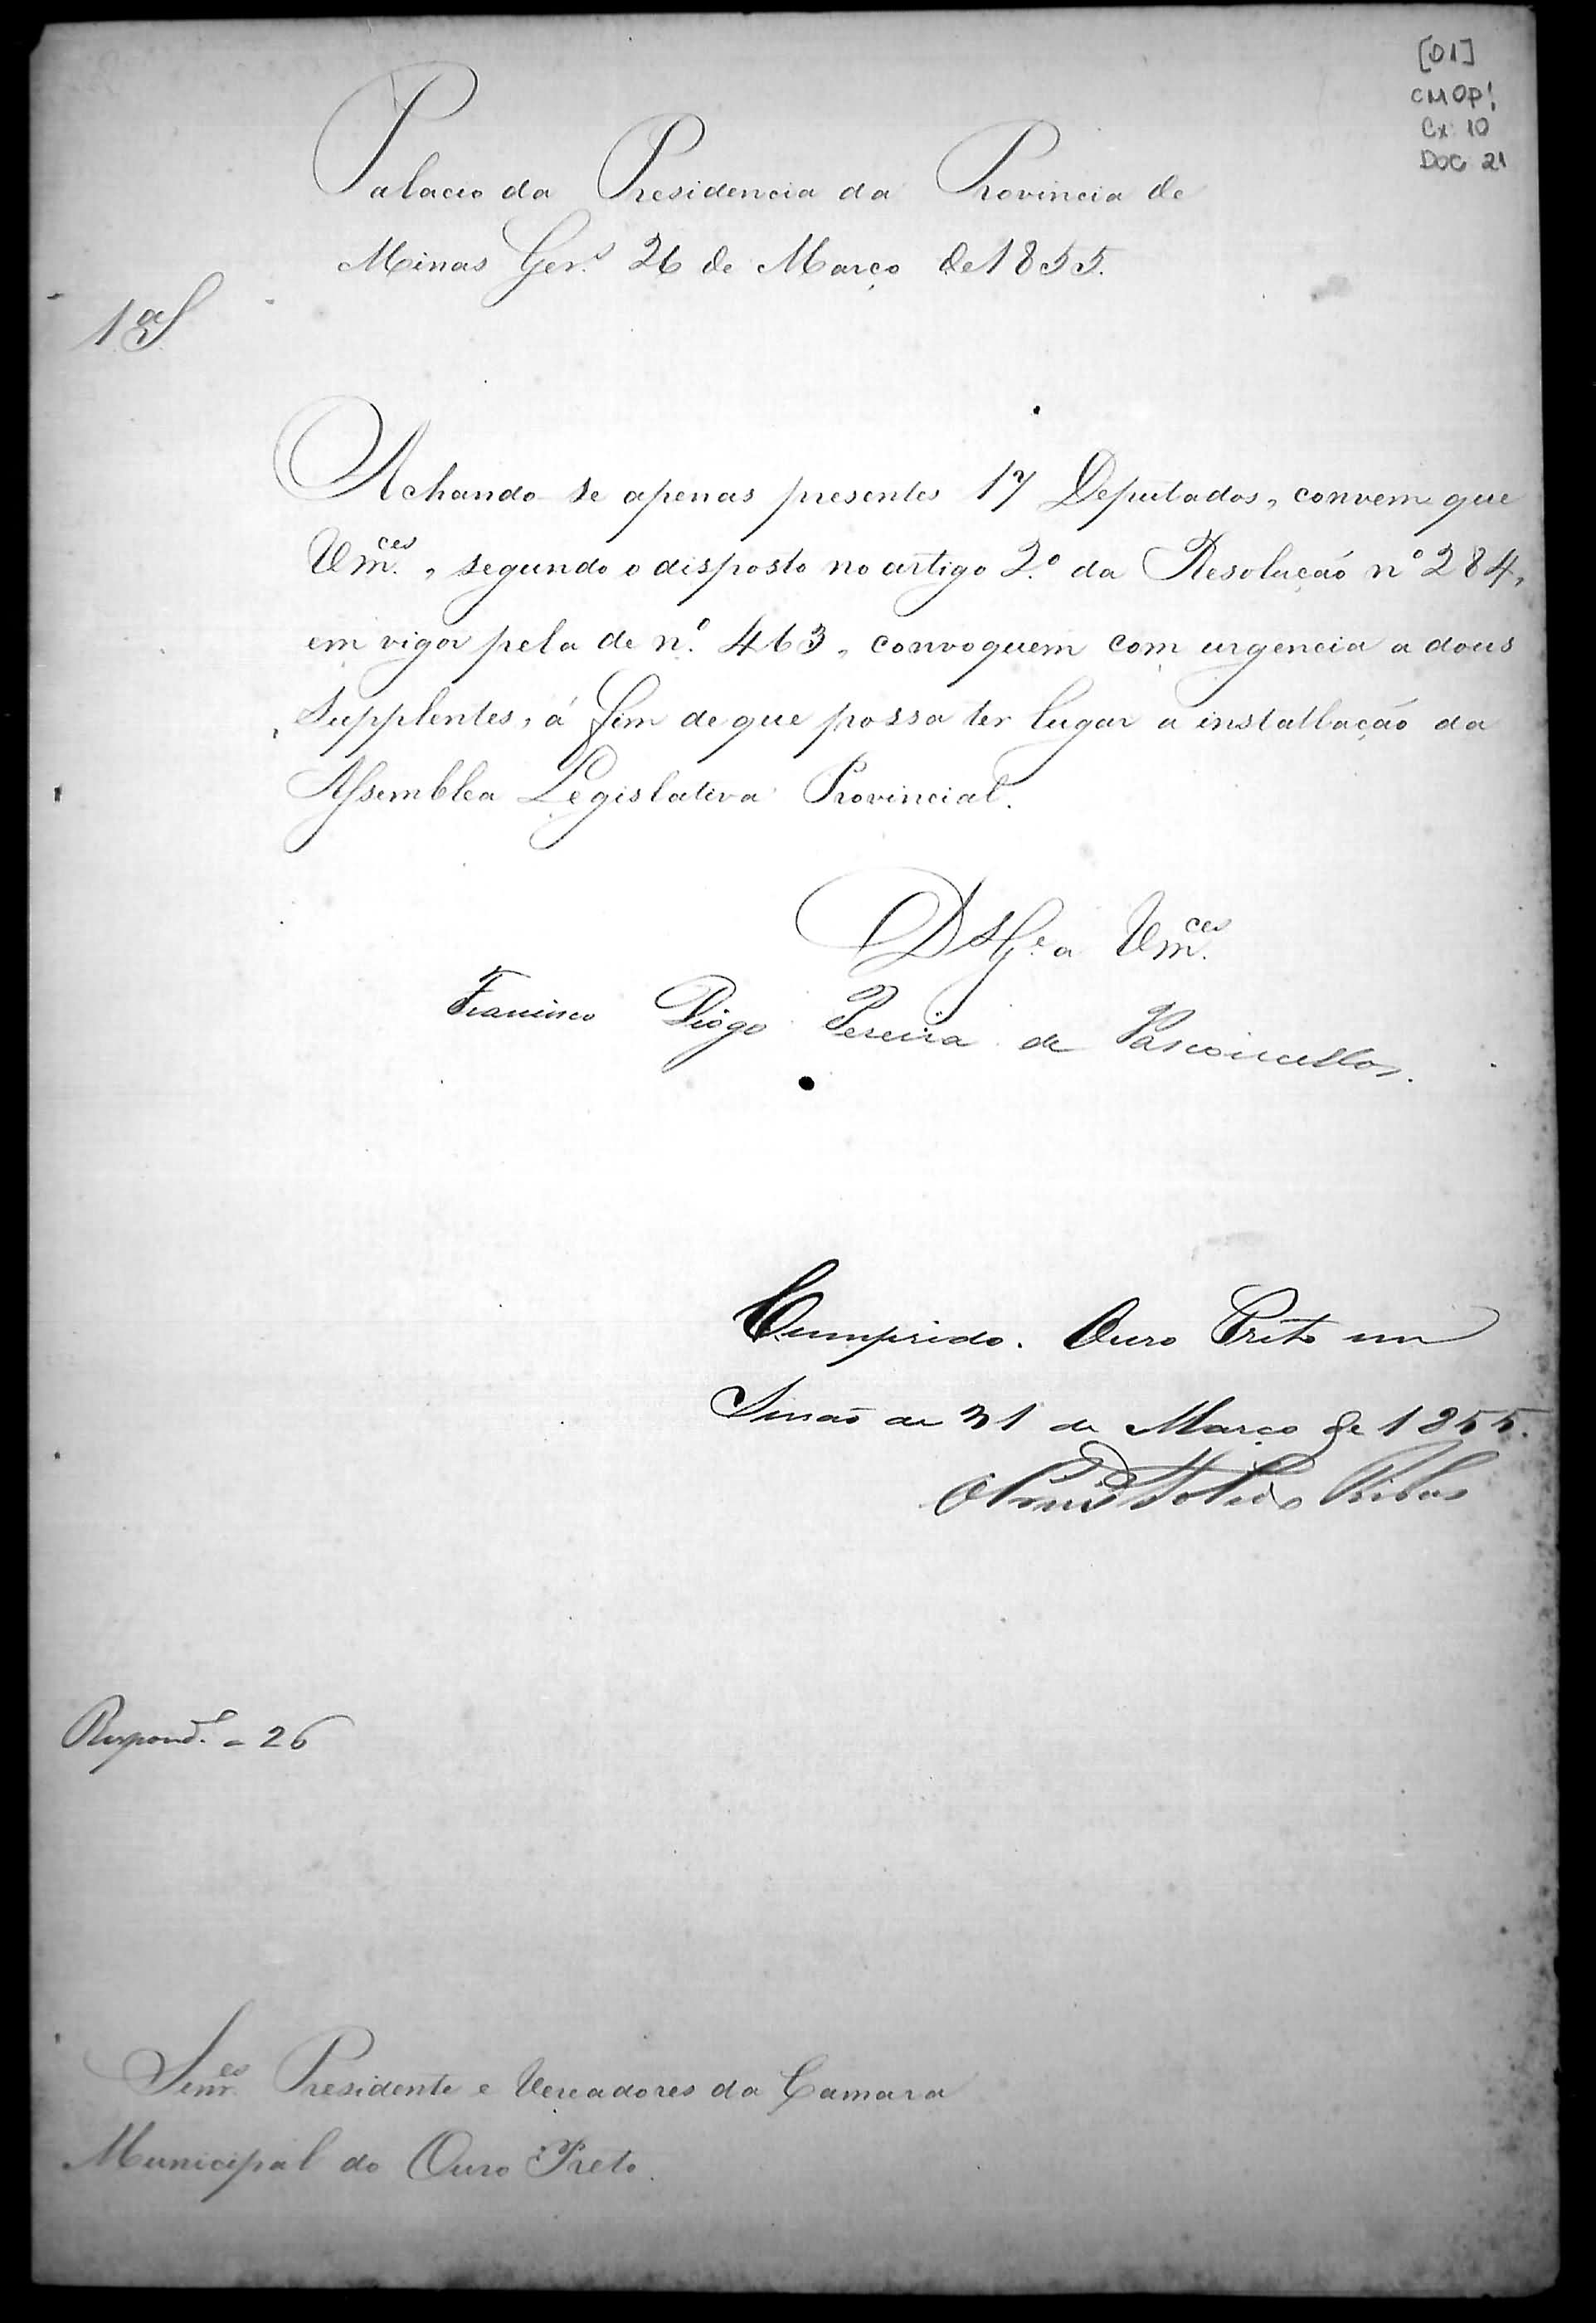 [01]
CMOP.
Cx 10
DOC 21
Palacio da Presidencia da Provincia de
Minas Ger.s 26 de Março de 1855.
1.ª S
Achando se apenas presentes 17 Deputados, convem que
Vm.ces, segundo o disposto no artigo 2.º da Resolução nº 284,
em vigor pela de n.º 463, convoquem com urgencia a dous
Supplentes, á fim de que possa ter lugar a installação da
Assemblea Legislativa Provincial.
D.s G.e a Vm.ces
Francisco Diogo Pereira de Vasconcellos.
Cumprido. Ouro Preto em
Sessão de 31 de Março de 1855.
Ribas
Respond. - 26
Senr.es Presidente e Vereadores da Camara
Municipal do Ouro Preto.